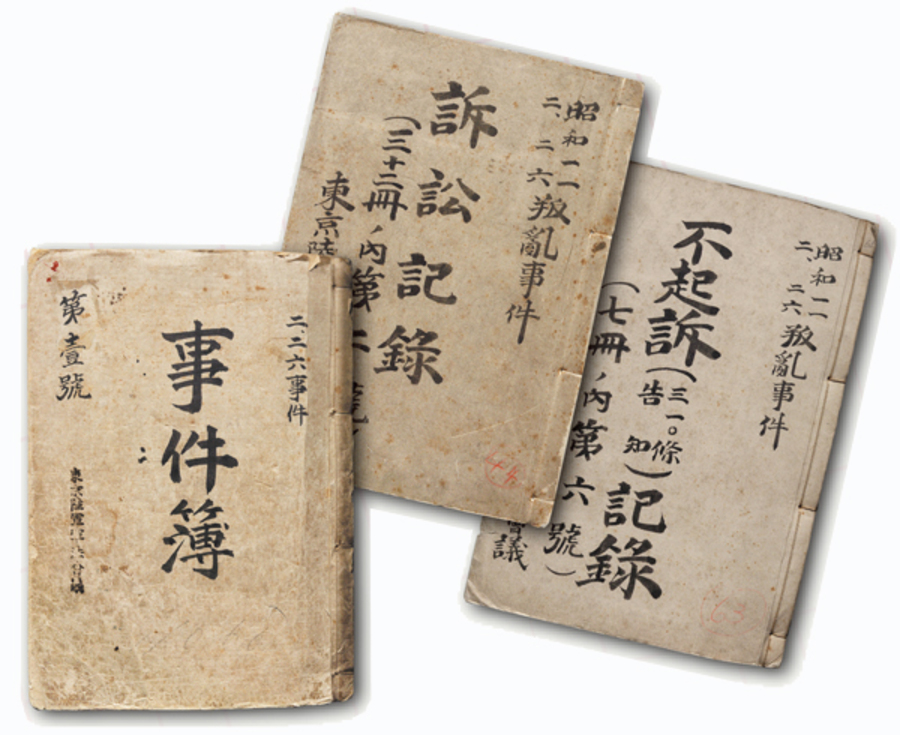 二、二六事件
事件簿
第壹號
昭和一一
二、二六叛亂事件
訴訟記錄
(三十二冊ノ内第二號)
東京陸
昭和一一
二、二六叛亂事件
不起訴(三一〇條告知)記錄
(七冊ノ内第六號)
會議